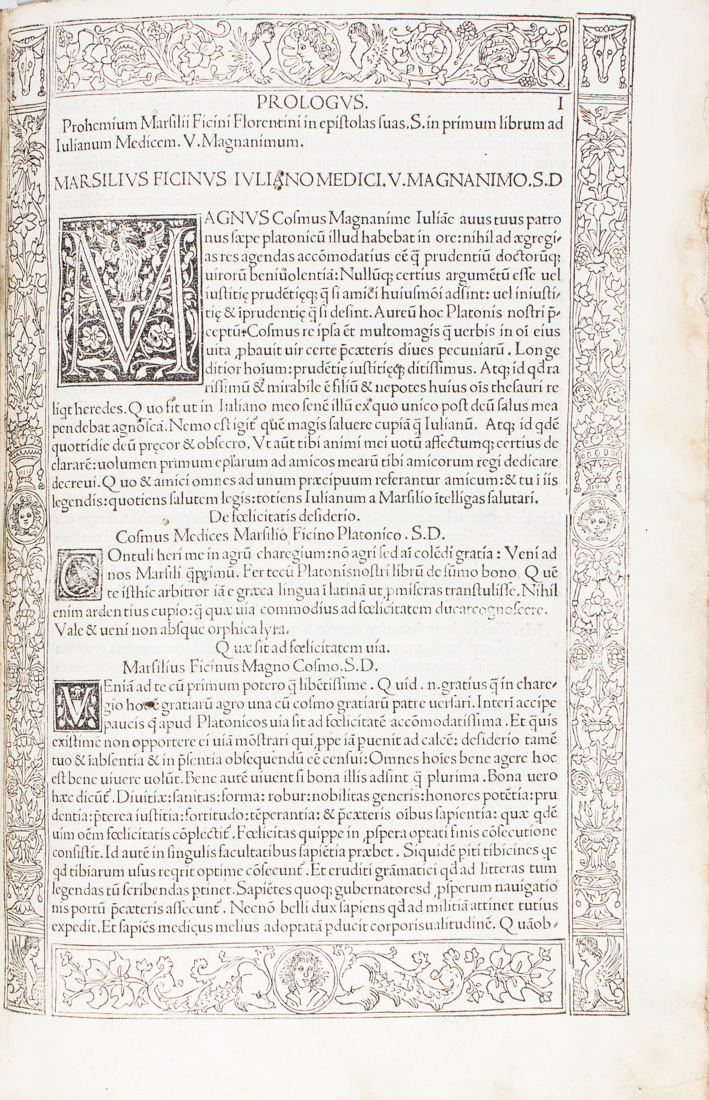 PROLOGVS. I
Prohemium Marsilii Ficini Florentini in epistolas suas.S.in primum librum ad
Iulianum Medicem. V. Magnanimum.
MARSILIVS FICINVS IVLIANO MEDICI.V.MAGNANIMO.S.D
MAGNVS Cosmus Magnanime Iuliãe auus tuus patro
nus sæpe platonicũ illud habebat in ore:nihil ad ægregi⸗
as res agendas accõmodatius eẽ q̃ prudentiũ doctorũq;
uirorũ beniuolentiã:Nullũq; certius argumẽtũ esse uel
iustitię prudẽtięq; q̃ si amici huiusmõi adsint: uel iniusti⸗
tię & ĩprudentię q̃ si desint. Aureũ hoc Platonis nostri p̃⸗
ceptũ:Cosmus re ipsa ẽt multomagis q̃ uerbis in oĩ eius
uita ꝓbauit uir certe p̃cæteris diues pecuniarũ. Longe
ditior hoium:prudẽtię iustitięq; ditissimus. Atq; id qd ra
rissimũ & mirabile ẽ filiũ & nepotes huius ois thesauri re
liqt heredes. Quo fit ut in Iuliano meo senẽ illũ ex quo unico post deũ salus mea
pendebat agnoscã. Nemo est igit̃ quẽ magis saluere cupiã q̃ Iulianũ. Atq; id qdẽ
quottidie deũ pręcor & obsecro. Vt aũt tibi animi mei uotũ affectumq; certius de
clararẽ:uolumen primum epľarum ad amicos mearũ tibi amicorum regi dedicare
decreui. Quo & amici omnes ad unum præcipuum referantur amicum:& tu ĩ iis
legendis:quotiens salutem legis:totiens Iulianum a Marsilio ĩtelligas salutari.
De fœlicitatis desiderio.
Cosmus Medices Marsilio Ficino Platonico. S.D.
COntuli heri me in agrũ charegium:nõ agri sed aĩ colẽdi gratia: Veni ad
nos Marsili q̃primũ. Fer tecũ Platonis nostri librũ de sũmo bono. Quẽ
te isthic arbitror iã e græca lingua ĩ latinã ut ꝓmiseras transtulisse. Nihil
enim ardentius cupio:q̃ quæ uia commodius ad fœlicitatem ducat cognoscere.
Vale & ueni non absque orphica lyra.
Quæ sit ad fœlicitatem uia.
Marsilius Ficinus Magno Cosmo.S.D.
VEniã ad te cũ primum potero q̃ libẽtissime. Quid .n.gratius q̃ in chare⸗
gio hoc ẽ gratiarũ agro una cũ cosmo gratiarũ patre uersari. Interĩ accipe
paucis q̃ apud Platonicos uia sit ad fœlicitatẽ accõmodatissima. Et q̃uis
existimẽ non opportere ei uiã mõstrari qui ꝓpe iã puenit ad calcẽ: desiderio tamẽ
tuo & ĩabsentia & in p̃sentia obsequendũ eẽ censui:Omnes hoĩes bene agere hoc
est bene uiuere uolũt. Bene autẽ uiuent si bona illis adsint q̃ plurima. Bona uero
hæc dicũt̃. Diuitiæ:sanitas:forma: robur:nobilitas generis:honores potẽtia:pru
dentia:p̃terea iustitia:fortitudo:tẽperantia:& p̃cæteris oibus sapientia: quæ qdẽ
uim oẽm fœlicitatis cõplectit̃. Fœlicitas quippe in ꝓspera optati finis cõsecutione
consistit. Id autẽ in singulis facultatibus sapiẽtia præbet. Siquidẽ piti tibicines qc
qd tibiarum usus reqrit optime cõsecunt̃. Et eruditi grãmatici qd ad litteras tum
legendas tũ scribendas ptinet. Sapiẽtes quoq; gubernatores ad ꝓsperum nauigatio
nis portũ p̃cæteris assecunt̃. Necnõ belli dux sapiens qd ad militiã attinet tutius
expedit. Et sapiẽs medicus melius adoptatã pducit corporis ualitudinẽ. Quãob⸗